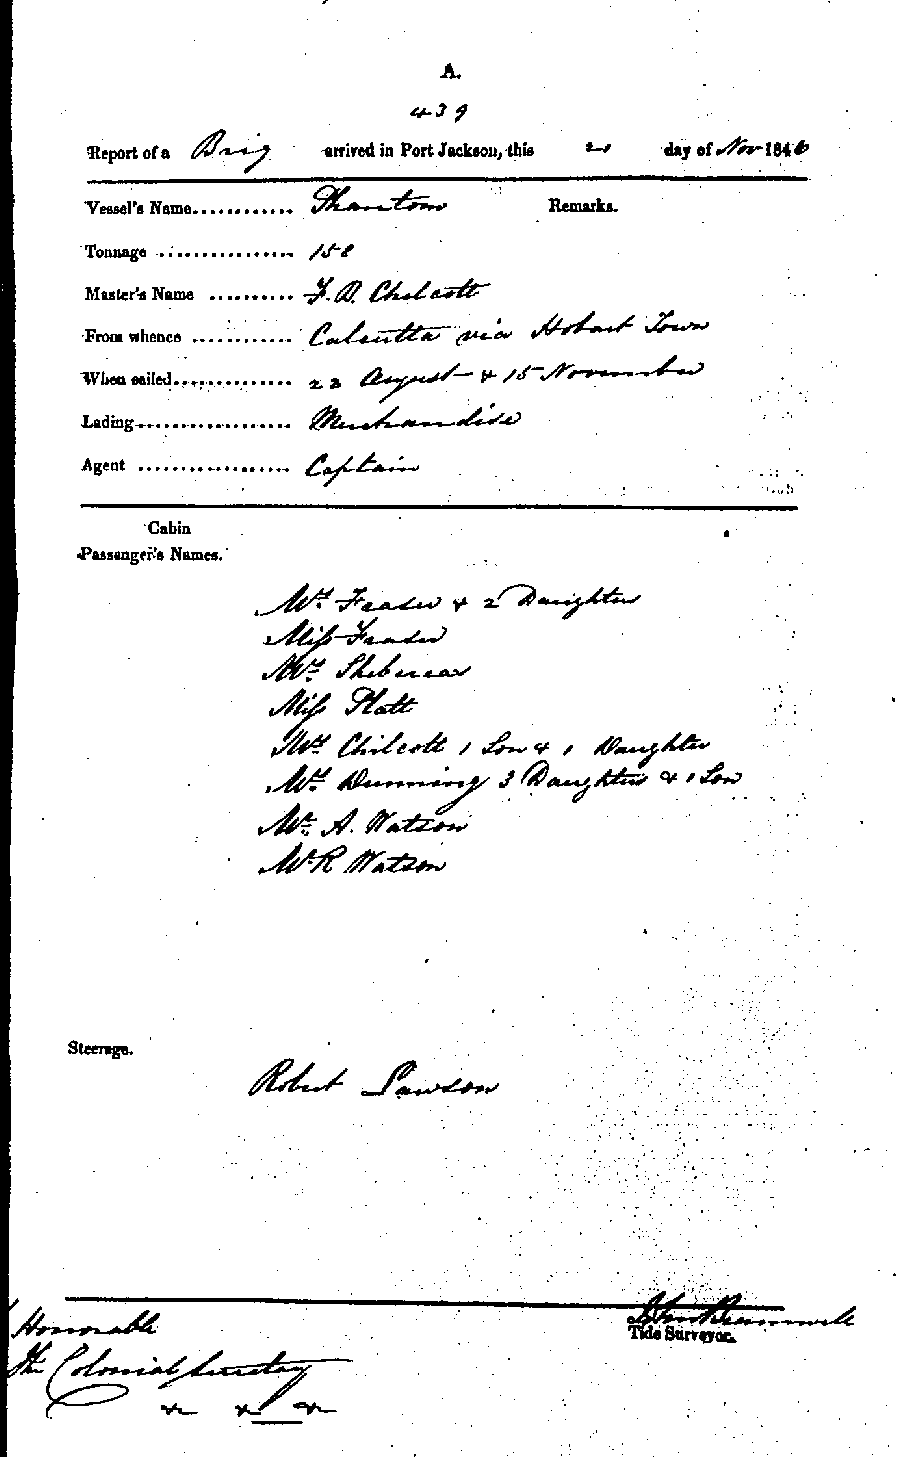 A.
439
Report of a Brig arrived in Port Jackson, this 20 day of Nov 1846
Vessel's Name............ Phantom Remarks.
Tonnage ................ 158
Master's Name .......... F. D. Chilcott
From whence ............ Calcutta via Hobart Town
When sailed.............. 22 August & 15 November
Lading................... Merchandise
Agent .................. Captain
Cabin
Passanger's Names.
Mrs Fraser & 2 Daughters
Miss Fraser
Mr Shebereas
Miss Platt
Mrs Chilcott 1 Son & 1 Daughter
Mrs Dunning 3 Daughters & 1 Son
Mr A. Watson
Mr R Watson
Steerage.
Robert Lawson
Honorable
The Colonial Secretary
&c &c &c
John Bramwell
Tide Surveyor.